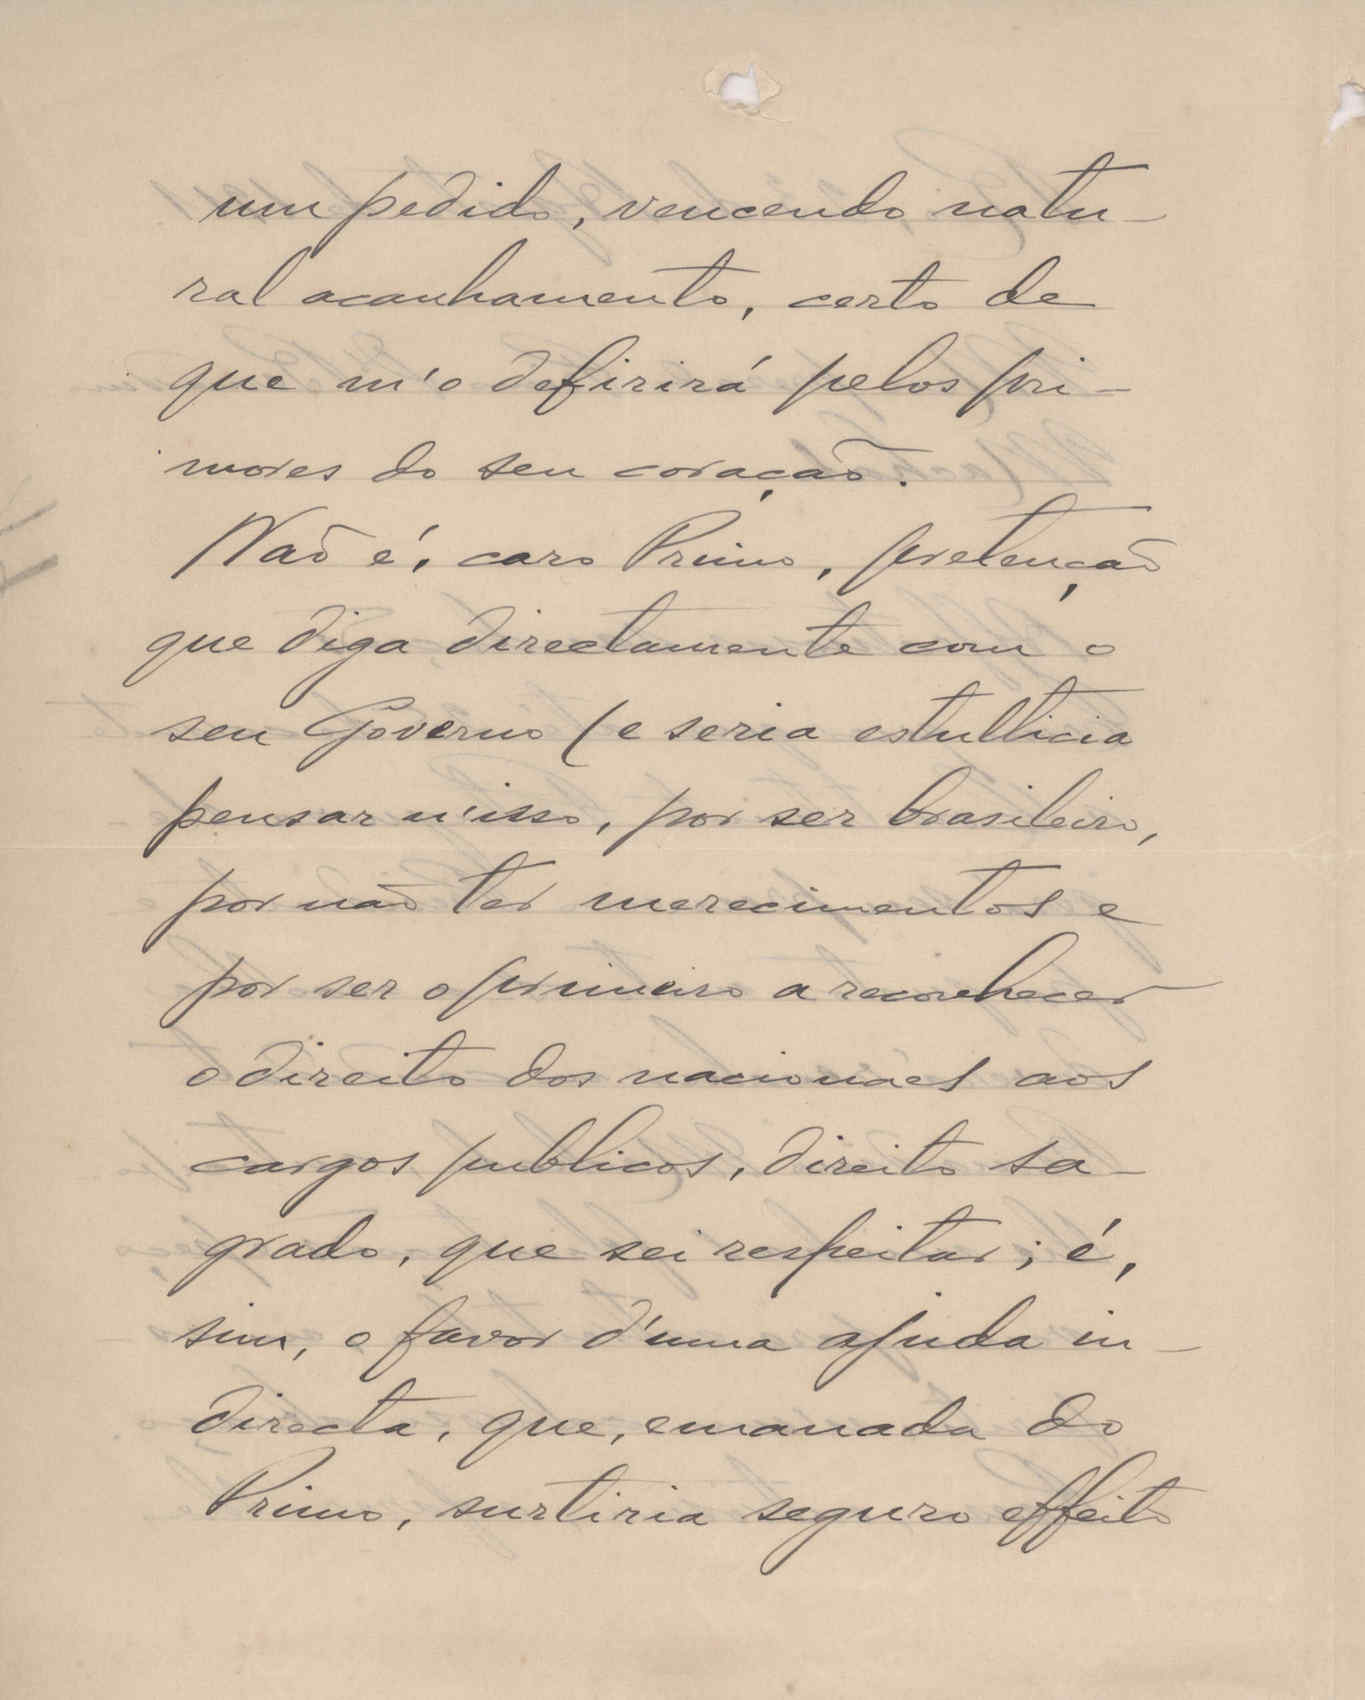 um pedido, vencendo natu-
ral acanhamento, certo de
que m'o defirirá pelos pri-
mores do seu coração.
Não é, caro Primo, pretenção
que diga directamente com o
seu Governo (e seria estulticia
pensar n'isso, por ser brasileiro,
por não ter merecimentos e
por ser o primeiro a reconhecer
o direito dos nacionáes aos
cargos publicos, direito sa-
grado, que sei respeitar; é,
sim, o favor d'uma ajuda in-
directa, que, emanada do
Primo, surtiria seguro effeito